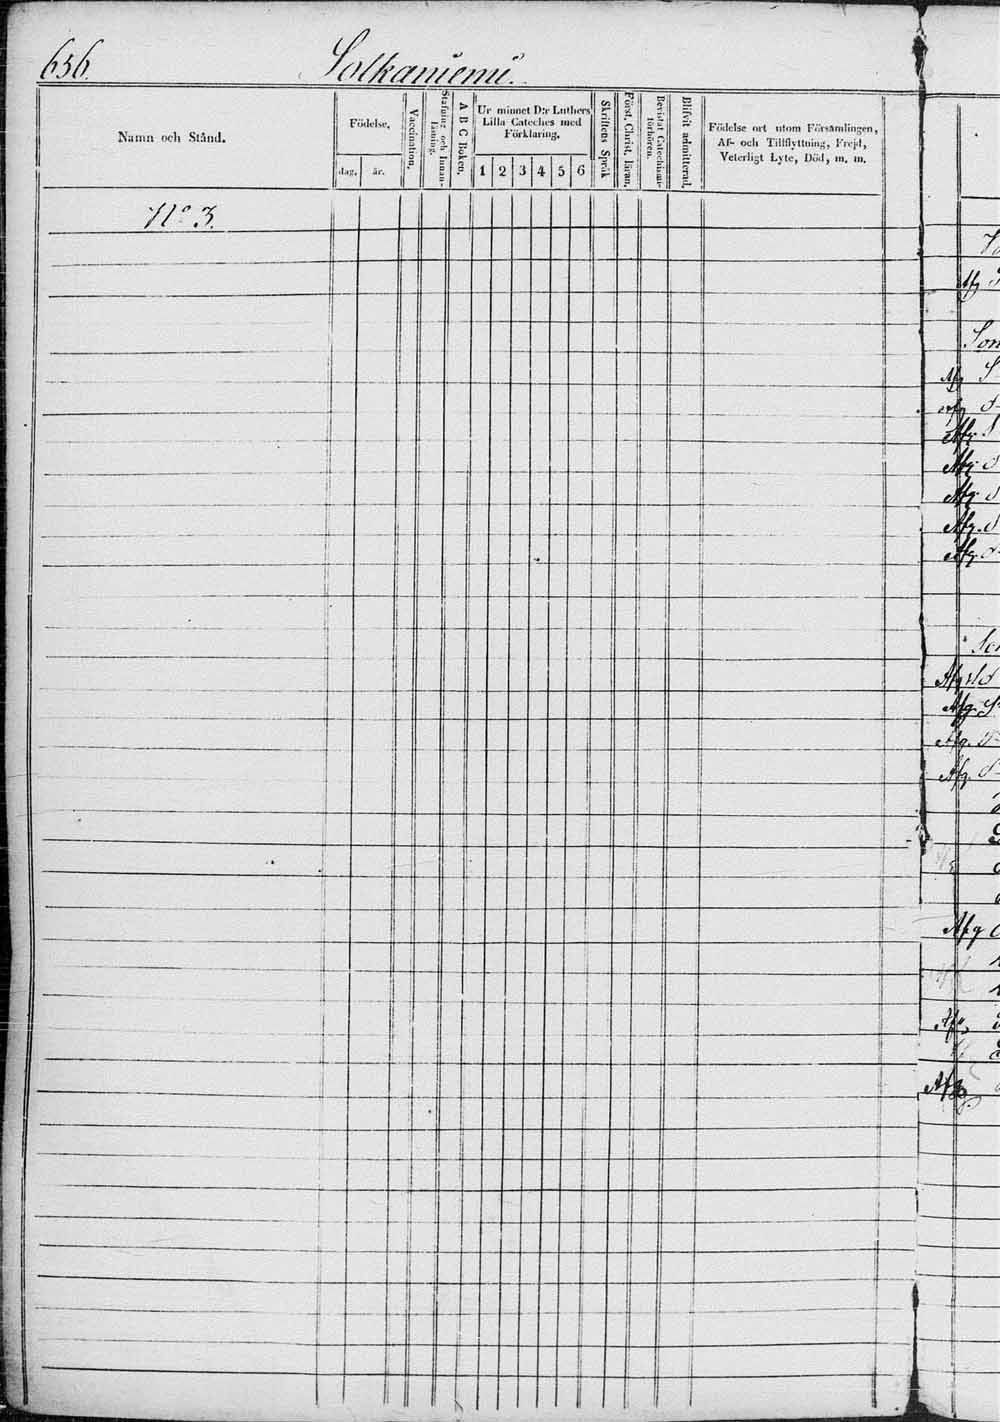 656. Solkaniemi.
Namn och Stånd.
Födelse,
dag. år.
Vaccination.
Stafning och Innan-
läsning.
A B C Boken.
Ur minnet D:r Luthers
Lilla Cateches med
Förklaring.
1 2 3 4 5 6
Skriftens Språk
Först. Christ. läran.
Bevistat Catechism-
förhören.
Blifvit admitterad.
Födelse ort utom Församlingen,
Af- och Tillflyttning, Frejd,
Veterligt Lyte, Död, m. m.
No 3.
Afg
Afg
Afg
Afg.
Afg
Afg
Afg.
Afg.
Afg
Afg.
Afg.
Afg.
Afg
Afg
Afg